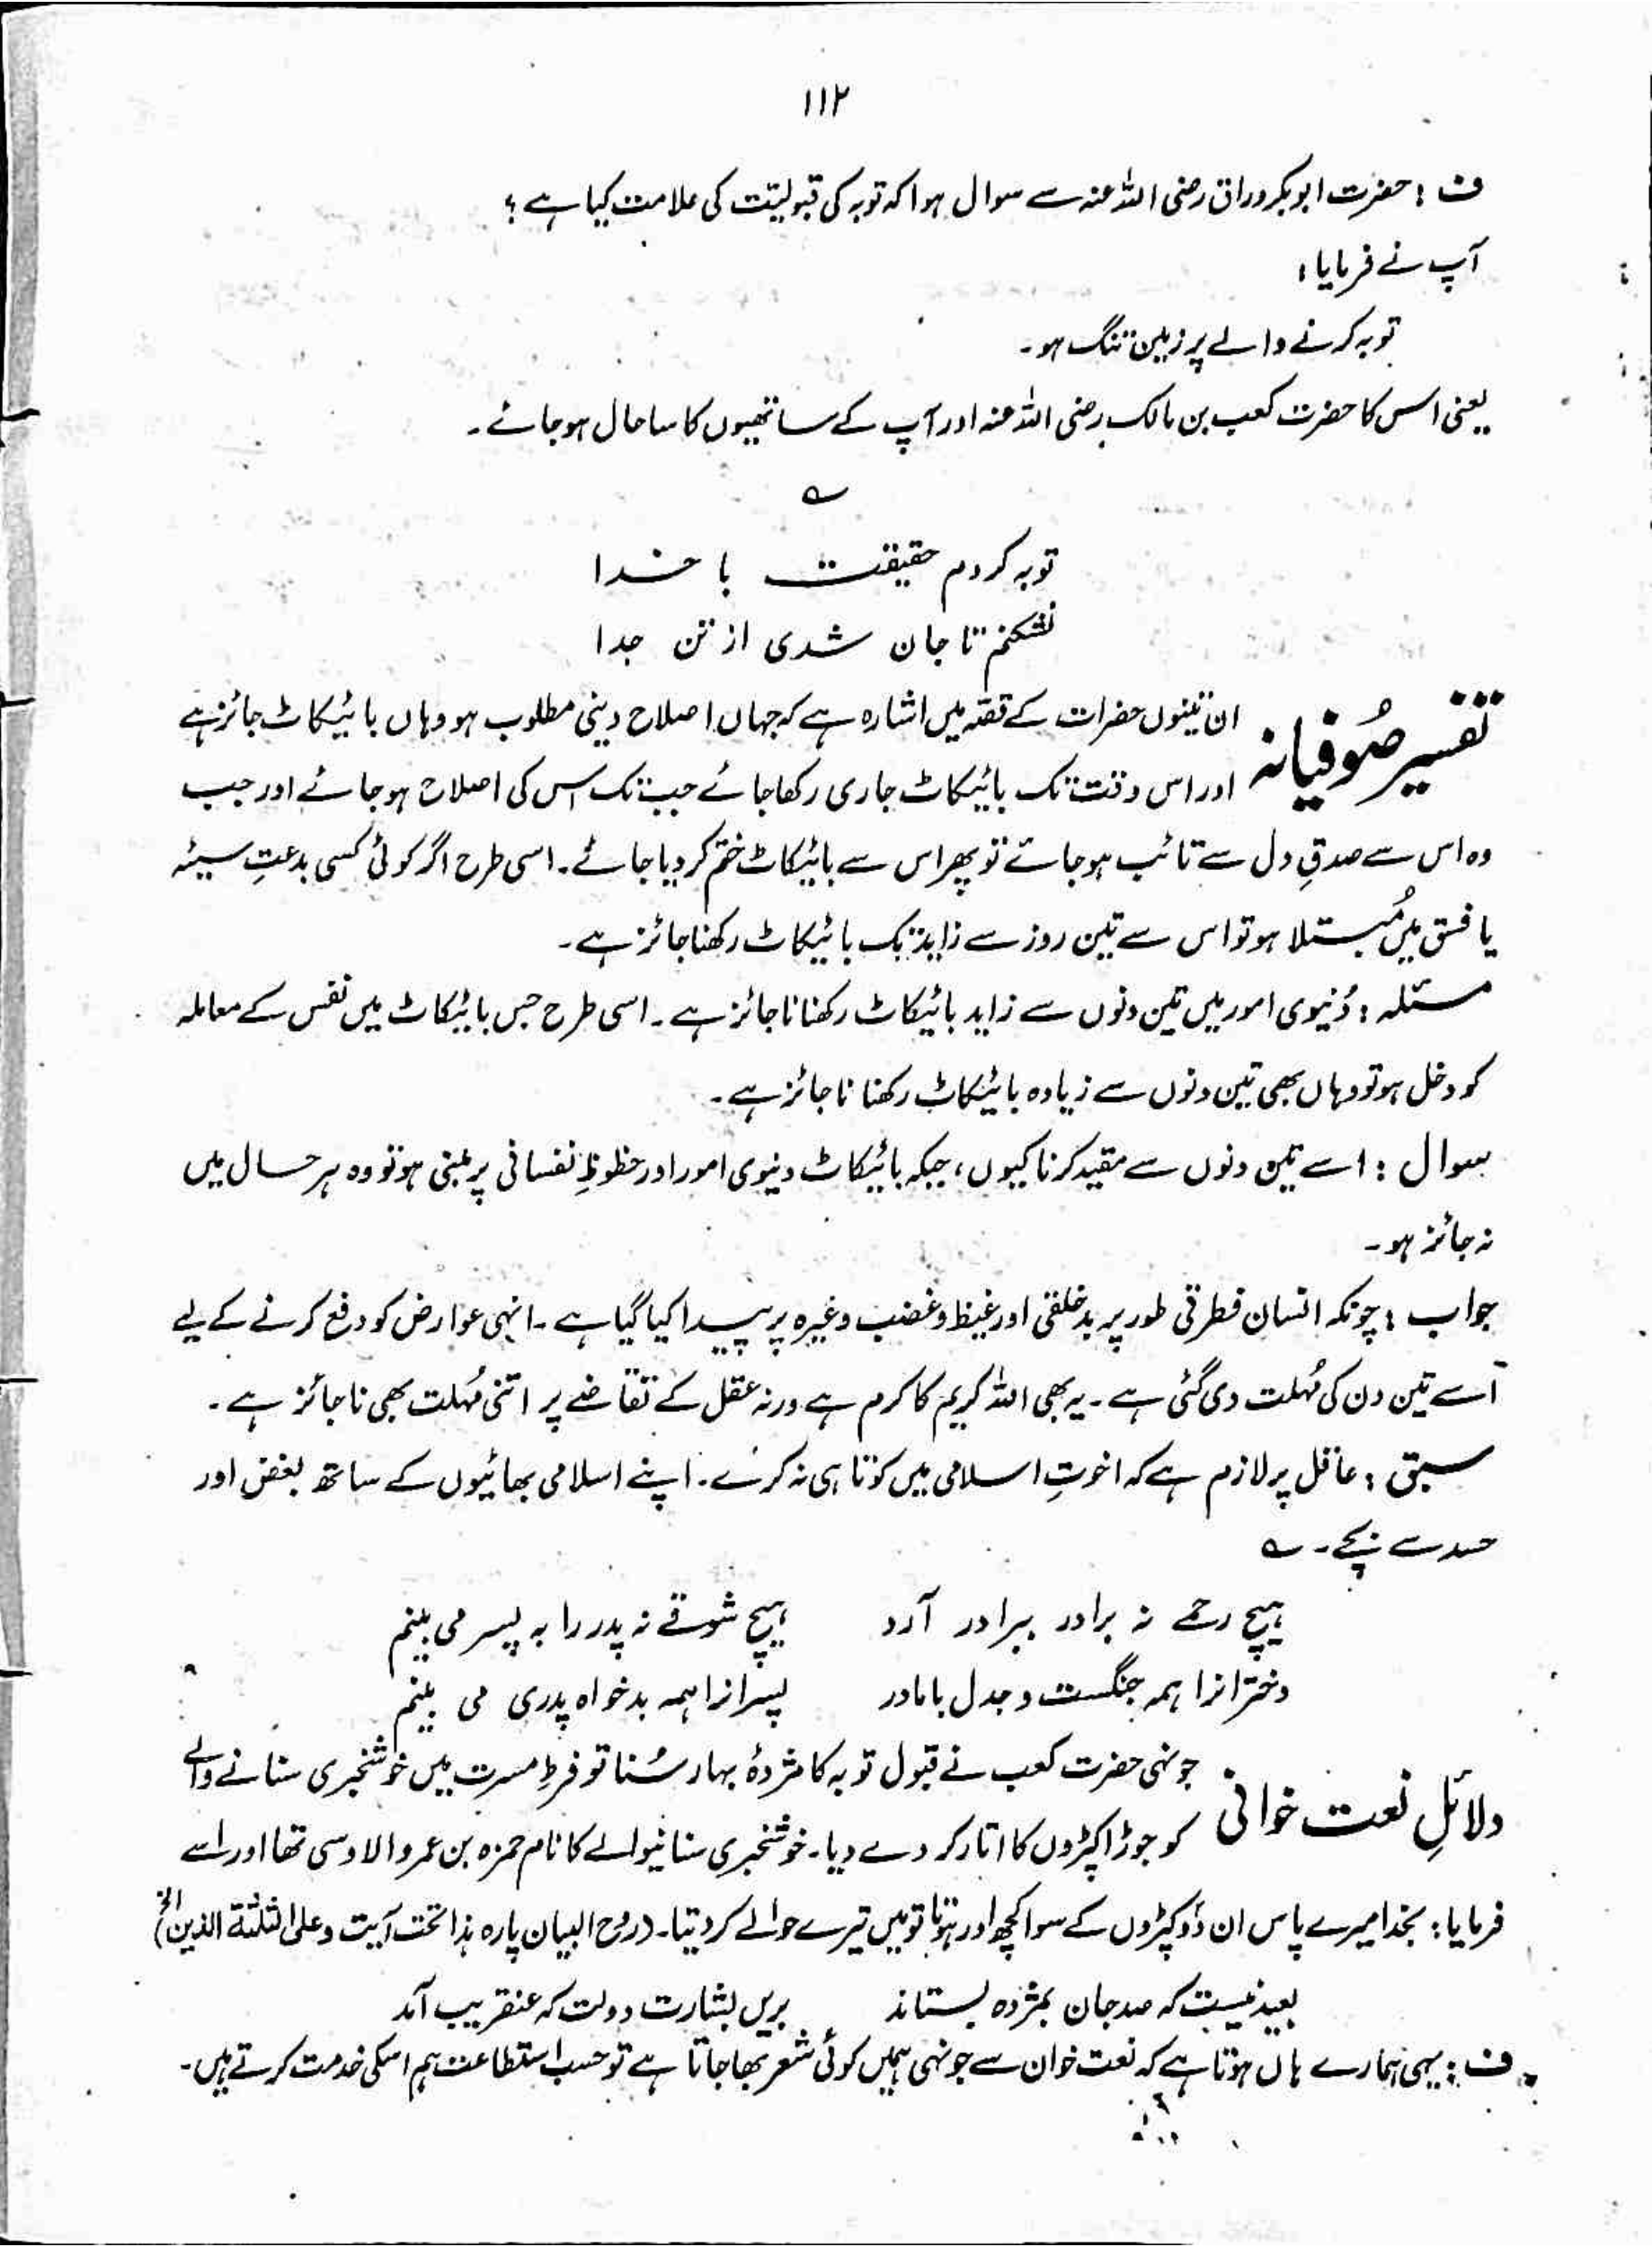 ۱۱۲
ف : حضرت ابوبکر وراق رضی اللہ عنہ سے سوال ہوا کہ توبہ کی قبولیّت کی علامت کیا ہے ؟
آپ نے فرمایا :
توبہ کرنے والے پر زمین تنگ ہو ۔
یعنی اس کا حضرت کعب بن مالک رضی اللہ عنہ اور آپ کے ساتھیوں کا سا حال ہو جائے ۔
؎
توبہ کردم حقیقت با خدا
نشکنم تا جان شدی از تن جدا
تفسیر صُوفیانہ ان تینوں حضرات کے قصّہ میں اشارہ ہے کہ جہاں اصلاح دینی مطلوب ہو وہاں بائیکاٹ جائز ہے
اور اس وقت تک بائیکاٹ جاری رکھا جائے جب تک اس کی اصلاح ہو جائے اور جب
وہ اس سے صدقِ دل سے تائب ہو جائے تو پھر اس سے بائیکاٹ ختم کر دیا جائے ۔ اسی طرح اگر کوئی کسی بدعتِ سیئہ
یا فسق میں مُبتلا ہو تو اس سے تین روز سے زاید تک بائیکاٹ رکھنا جائز ہے ۔
مسئلہ : دُنیوی امور میں تین دنوں سے زاید بائیکاٹ رکھنا ناجائز ہے ۔ اسی طرح جس بائیکاٹ میں نفس کے معاملہ
کو دخل ہو تو وہاں بھی تین دنوں سے زیادہ بائیکاٹ رکھنا ناجائز ہے ۔
سوال : اسے تین دنوں سے مقید کرنا کیوں ، جبکہ بائیکاٹ دنیوی امور اور حظوظِ نفسانی پر مبنی ہو تو وہ ہر حال میں
نہ جائز ہو ۔
جواب : چونکہ انسان فطرتی طور پر بدخلقی اور غیظ و غضب وغیرہ پر پیدا کیا گیا ہے ۔ انہی عوارض کو دفع کرنے کے لیے
اُسے تین دن کی مُہلت دی گئی ہے ۔ یہ بھی اللہ کریم کا کرم ہے ورنہ عقل کے تقاضے پر اتنی مُہلت بھی ناجائز ہے ۔
سبق : عاقل پر لازم ہے کہ اخوتِ اسلامی میں کوتاہی نہ کرے ۔ اپنے اسلامی بھائیوں کے ساتھ بغض اور
حسد سے بچے ۔ ؎
ہیچ رحمے نہ برادر ببرادر آرد ہیچ شوقے نہ پدر را بہ پسر می بینم
دخترانرا ہمہ جنگست و جدل بامادر پسرانرا ہمہ بدخواہ پدری می بینم
دلائلِ نعت خوانی جونہی حضرت کعب نے قبول توبہ کا مژدۂ بہار سُنا تو فرطِ مسرت میں خوشخبری سنانے والے
کو جوڑا کپڑوں کا اتار کر دے دیا ۔ خوشخبری سنانیوالے کا نام حمزہ بن عمرو الاوسی تھا اور اسے
فرمایا : بخدا میرے پاس ان دو کپڑوں کے سوا کچھ اور ہوتا تو میں تیرے حوالے کر دیتا ۔ (روح البیان پارہ ہذا تحت آیت وعلی الثلٰثۃ الذین الخ)
بعید نیست کہ صد جان بمژدہ بستاند بریں بشارت دولت کہ عنقریب آمد
ف : یہی ہمارے ہاں ہوتا ہے کہ نعت خوان سے جونہی ہمیں کوئی شعر بھا جاتا ہے تو حسب استطاعت ہم اسکی خدمت کرتے ہیں ۔